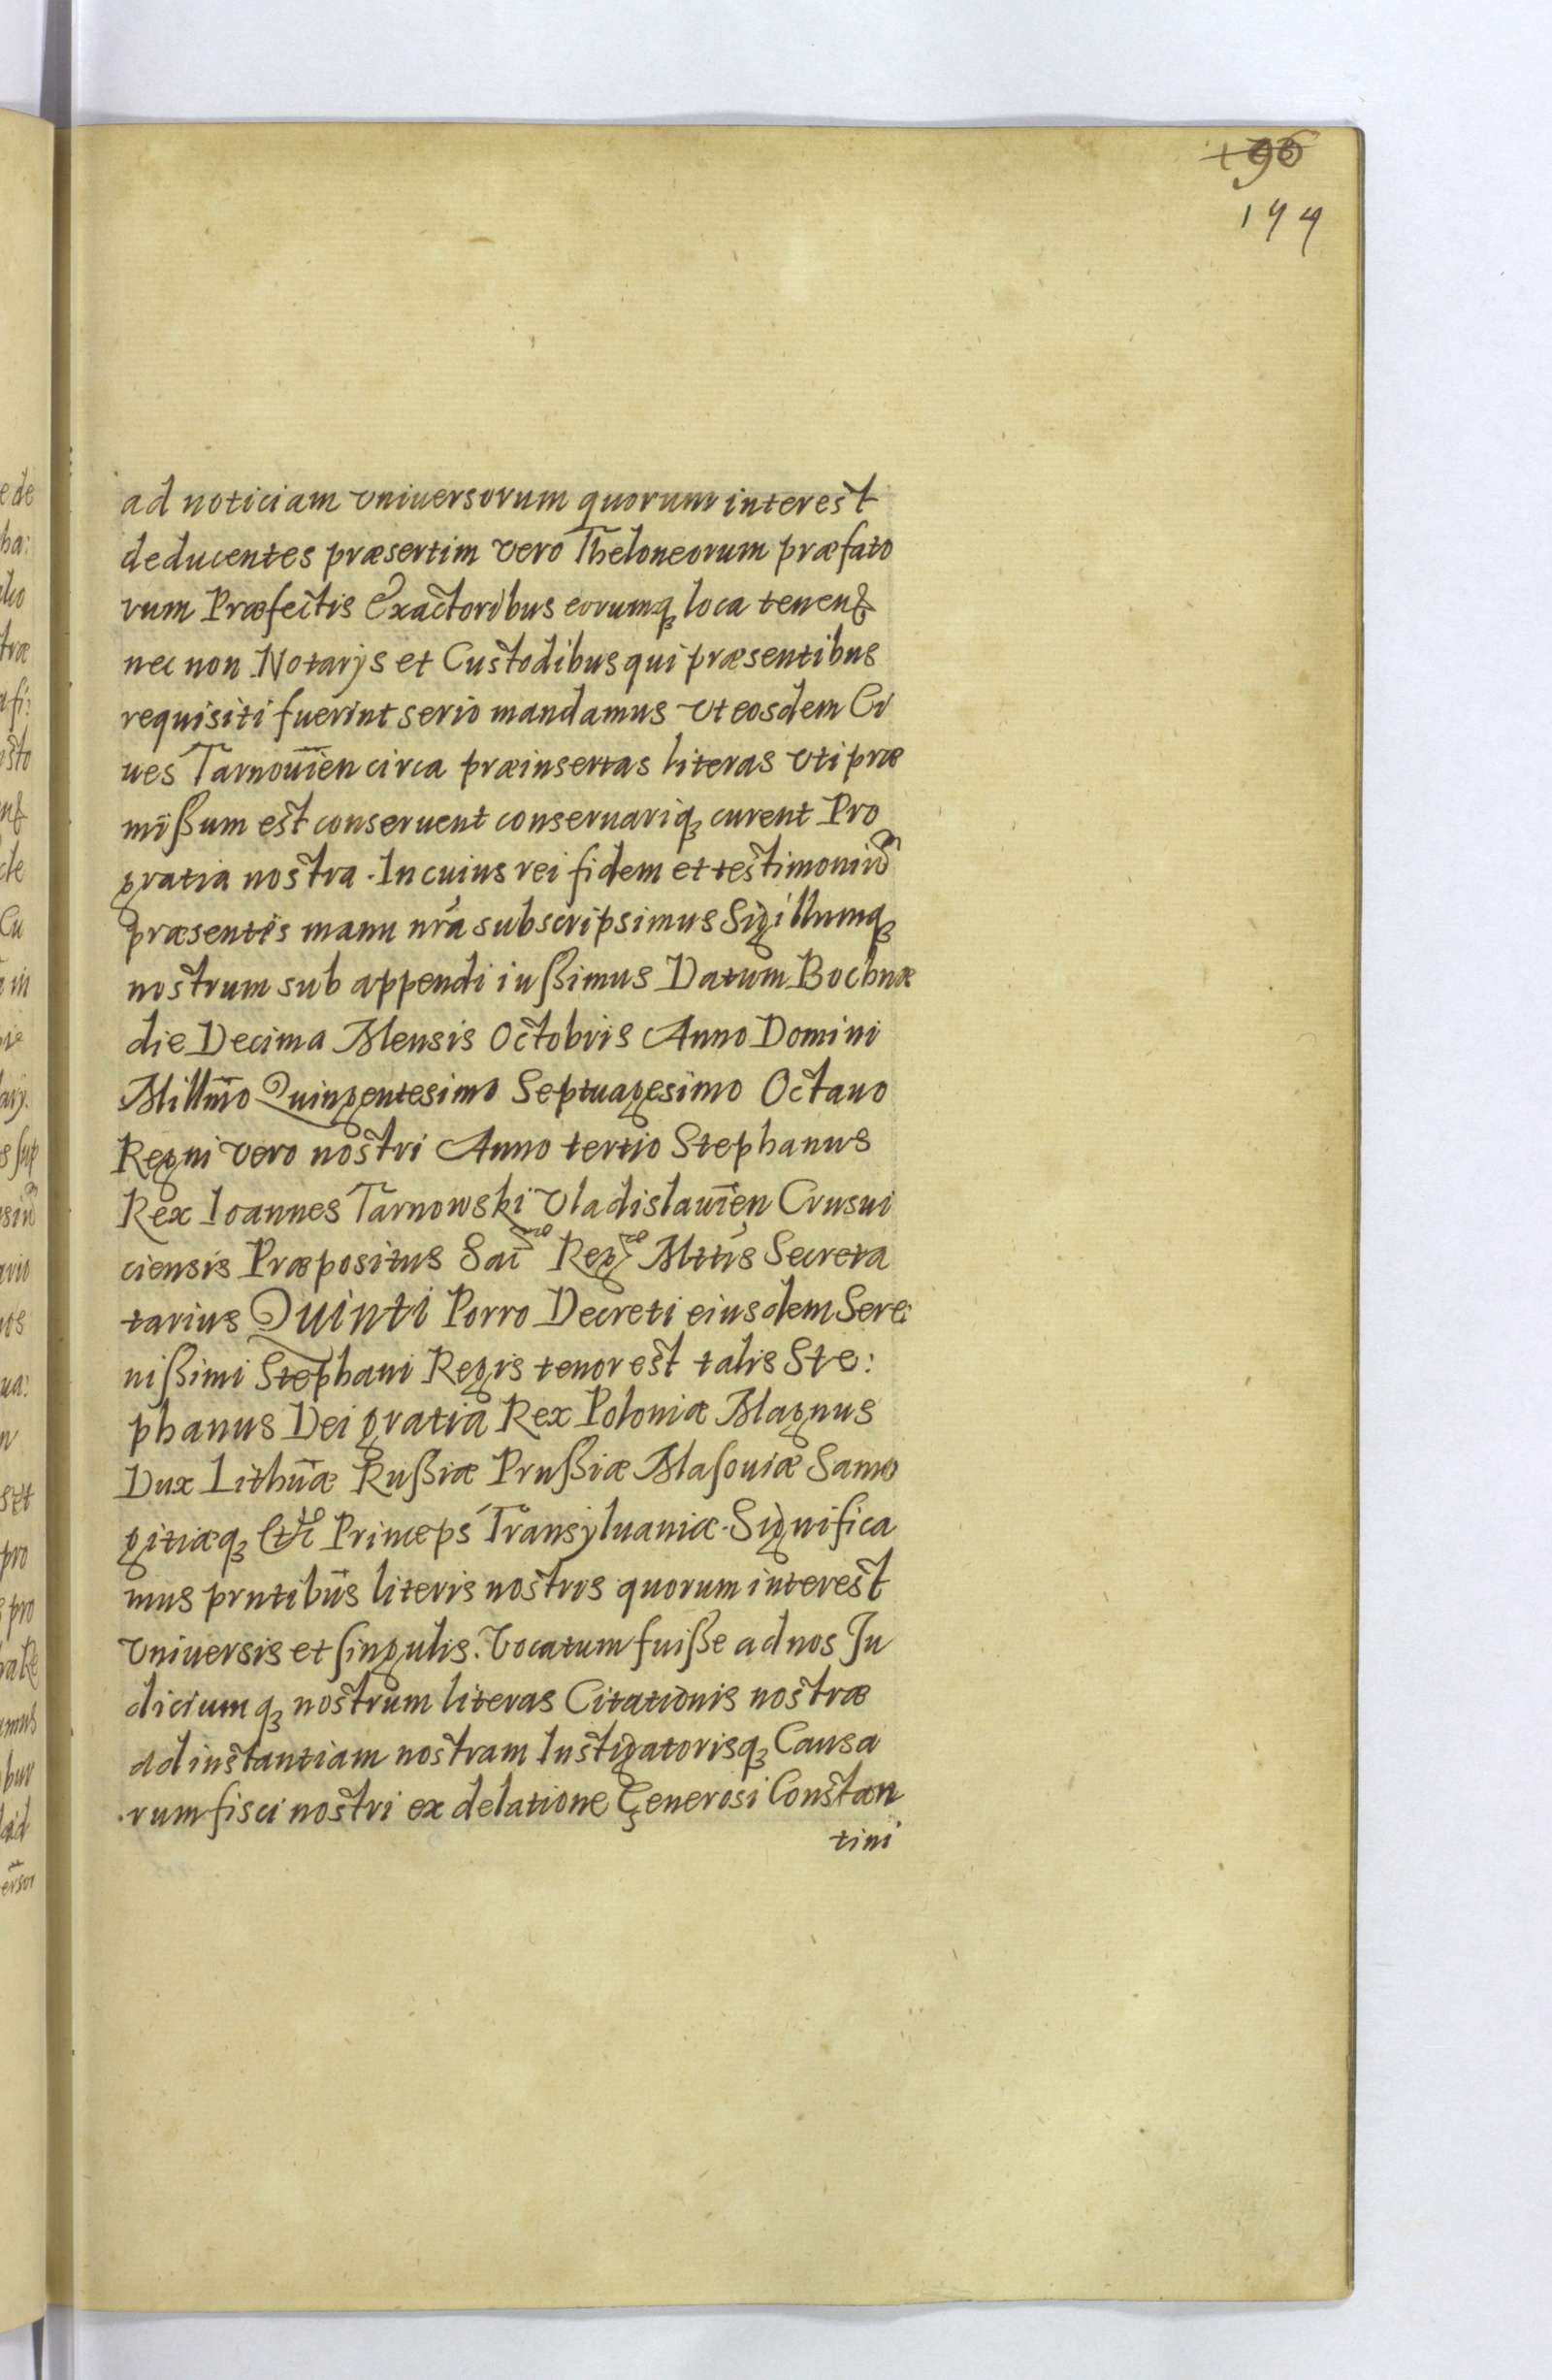 196
144
ad noticiam vniuersorum quorum interest
deducentes præsertim vero Theloneorum præfato
rum Præfectis Exactoribus eorumq₃ loca tenen
nec non Notarÿs et Custodibus qui præsentibus
requisiti fuerint serio mandamus vt eosdem Ci
ues Tarnouien̄ circa præinsertas literas vti præ
mißum est conseruent conseruariq₃ curent Pro
gratia nostra. In cuius rei fidem et testimoniū
præsentis manu nrá subscripsimus Sigillumq₃
nostrum sub appendi iußimus Datum Bochnæ
die Decima Mensis Octobris Anno Domini
Millm̄o Quingentesimo Septuagesimo Octauo
Regni vero nostri Anno tertio Stephanus
Rex Ioannes Tarnowski Vladislauien̄ Crusui
ciensis Præpositus Sac Reg Mttis Secreta
tarius Quinti Porro Decreti eiusdem Sere:
nißimi Stephani Regis tenor est talis Ste:
phanus Dei gratia Rex Poloniæ Magnus
Dux Lithuāæ Rußiæ Prußiæ Masouiæ Samo
gitiæq₃ Etc Princeps Transyluaniæ. Significa
mus prntibūs literis nostris quorum interest
Vniuersis et singulis. Vocatum fuiße ad nos Ju
diciumq₃ nostrum literas Citationis nostræ
ad instantiam nostram Instigatorisq₃ Causa
rum fisci nostri ex delatione Generosi Constan
tini